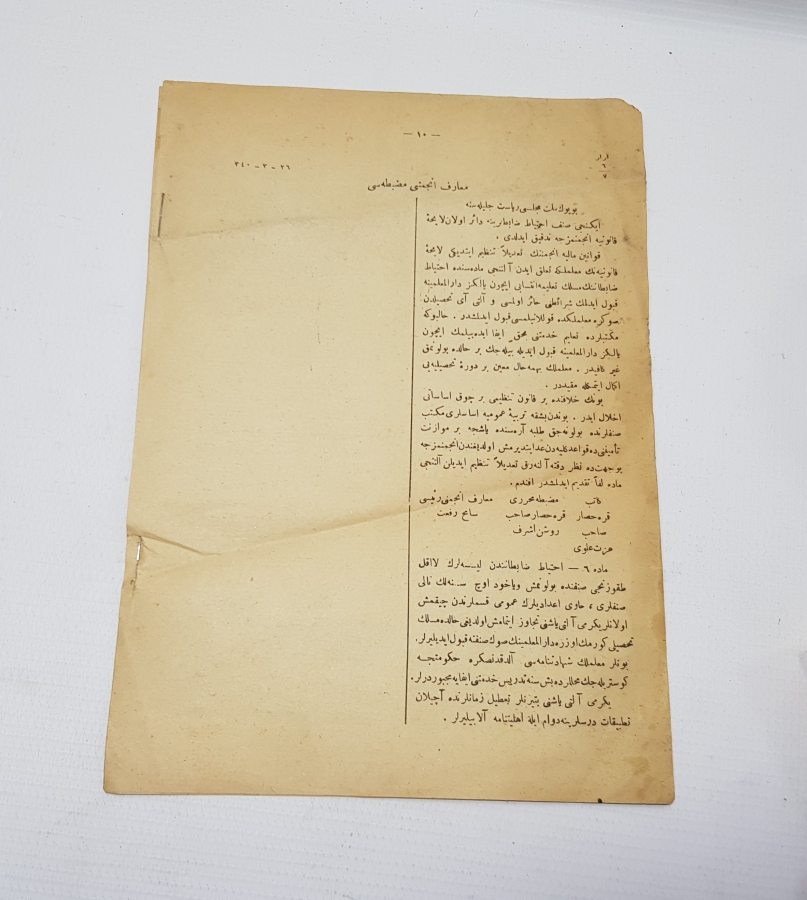 — ١٠ —
قرار
٦
٧
٢٦ - ٣ - ٣٤٠
معارف انجمنی مضبطه‌سی
بویوك ملت مجلسی ریاست جلیله‌سنه
ایكنجی صنف احتیاط ضابطانینه دائر اولان لایحۀ
قانونیه انجمنمزجه تدقیق ایدلدی .
قوانین مالیه انجمننك تعدیلاً تنظیم ایتدیكی لایحۀ
قانونیه‌نك معلملكه تعلق ایدن آلتنجی ماده‌سنده احتیاط
ضابطاننك مسلك تعلیمه انتسابی ایچون یالكز دارالمعلمینه
قبول ایدلمك شرائطنی حائز اولمسی و آلتی آی تحصیلدن
صوكره معلملكده قوللانیلمسی قبول ایدلمشدر . حالبوكه
مكتبلرده تعلیم خدمتنی بحق ایفا ایده‌بیلمك ایچون
یالكز دارالمعلمینه قبول ایدیله بیله‌جك بر حالده بولونمق
غیر كافیدر . معلملك بهمه‌حال معین بر دورۀ تحصیلیه‌یی
اكمال ایتمكله مقیددر .
بونك خلافنده بر قانون تنظیمی بر چوق اساساتی
اخلال ایدر . بوندن بشقه تربیۀ عمومیه اساسلری مكتب
صنفلرنده بولونه‌جق طلبه آره‌سنده یاشجه بر موازنت
تأمینی ده قواعد كلیه‌دن عد ایتدیرمش اولدیغندن انجمنمزجه
بوجهت ده نظر دقته آلنه‌رق تعدیلاً تنظیم ایدیلن آلتنجی
ماده لفاً تقدیم ایدلمشدر افندم .
كاتب مضبطه محرری معارف انجمنی رئیسی
قره‌حصار صاحب قره‌حصار صاحب سامح رفعت
صاحب روشن اشرف
عزت علوی
ماده ٦ — احتیاط ضابطانندن لیسه‌لرك لااقل
طقوزنجی صنفنده بولونمش ویاخود اوچ سنه‌لك تالی
صنفلری ، حاوی اعدادیلرك عمومی قسملرندن چیقمش
اولانلر یكرمی آلتی یاشنی تجاوز ایتمامش اولدیغی حالده مسلك
تحصیلی كورمك اوزره دارالمعلمینك صوك صنفنه قبول ایدیلیرلر.
بونلر معلملك شهادتنامه‌سی آلدقدنصكره حكومتجه
كوستریله‌جك محللرده بش سنه تدریس خدمتنی ایفایه مجبوردرلر.
یكرمی آلتی یاشنی بتیرنلر تعطیل زمانلرنده آچیلان
تطبیقات درسلرینه دوام ایله اهلیتنامه آلابیلیرلر .